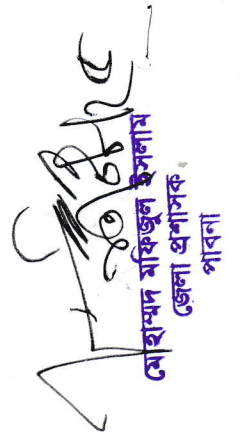 মোহাম্মদ মফিজুল ইসলাম
জেলা প্রশাসক
পাবনা